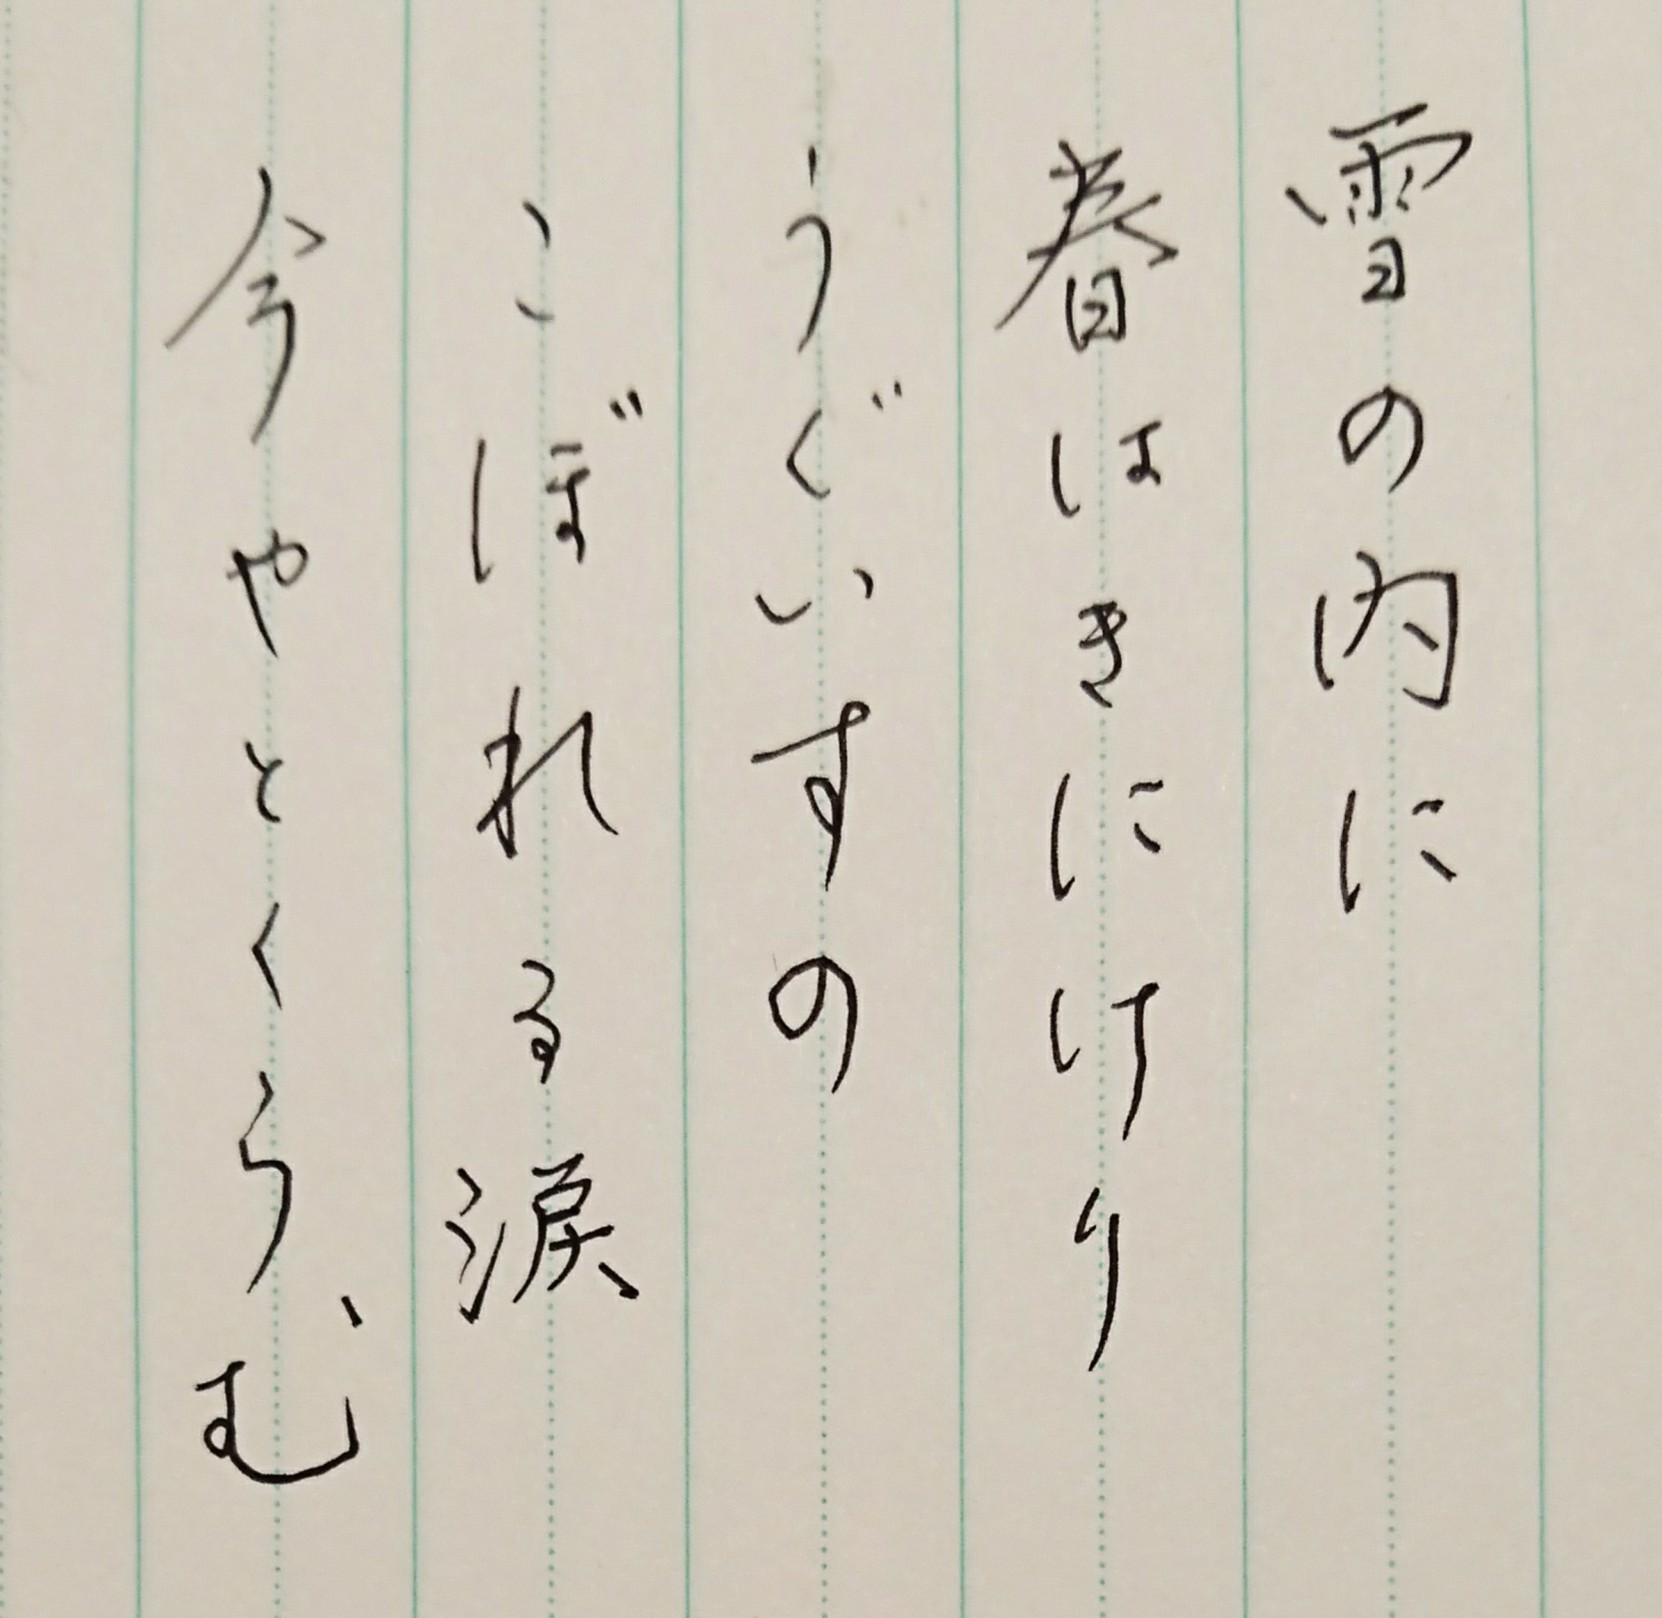 雪の内に
春はきにけり
うぐいすの
こぼれる涙
今やとくらむ